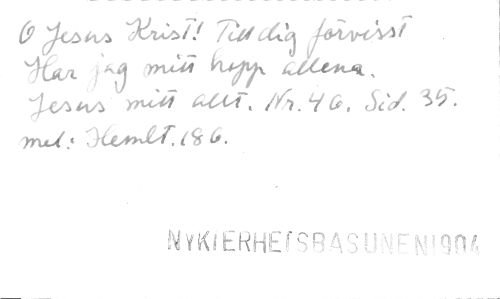 O Jesus Krist! Till dig förvisst
Har jag mitt hopp allena.
Jesus mitt allt. Nr. 46. Sid. 35.
mel: Hemlt. 186.
NYKTERHETSBASUNEN 1904